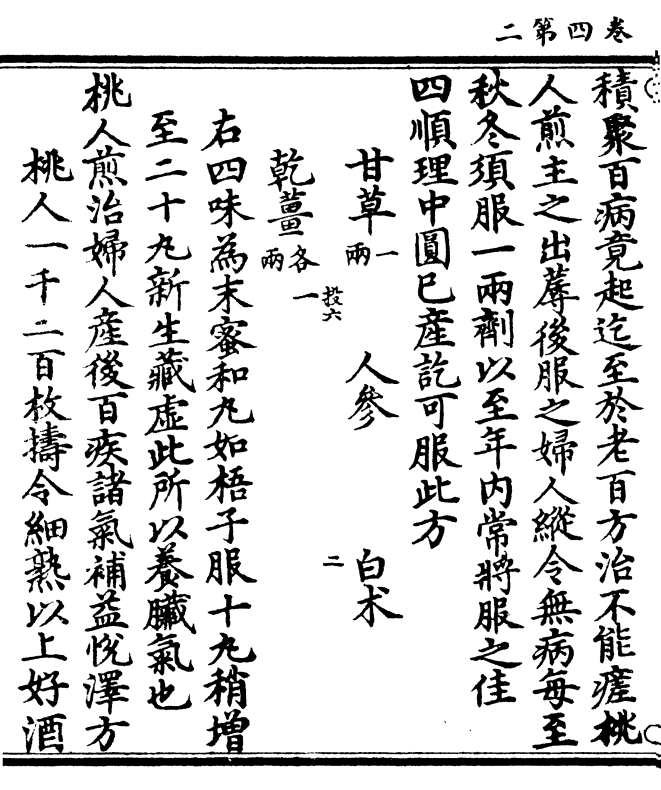 卷四第二
積聚百病竟起迄至於老百方治不能瘥桃
人煎主之出蓐後服之婦人縱令無病每至
秋冬須服一兩劑以至年內常將服之佳
四順理中圓已產訖可服此方
甘草一兩 人參 白术 二
乾薑各一兩 投六
右四味為末蜜和丸如梧子服十丸稍增
至二十丸新生藏虛此所以養臟氣也
桃人煎治婦人產後百疾諸氣補益悅澤方
桃人一千二百枚擣令細熟以上好酒